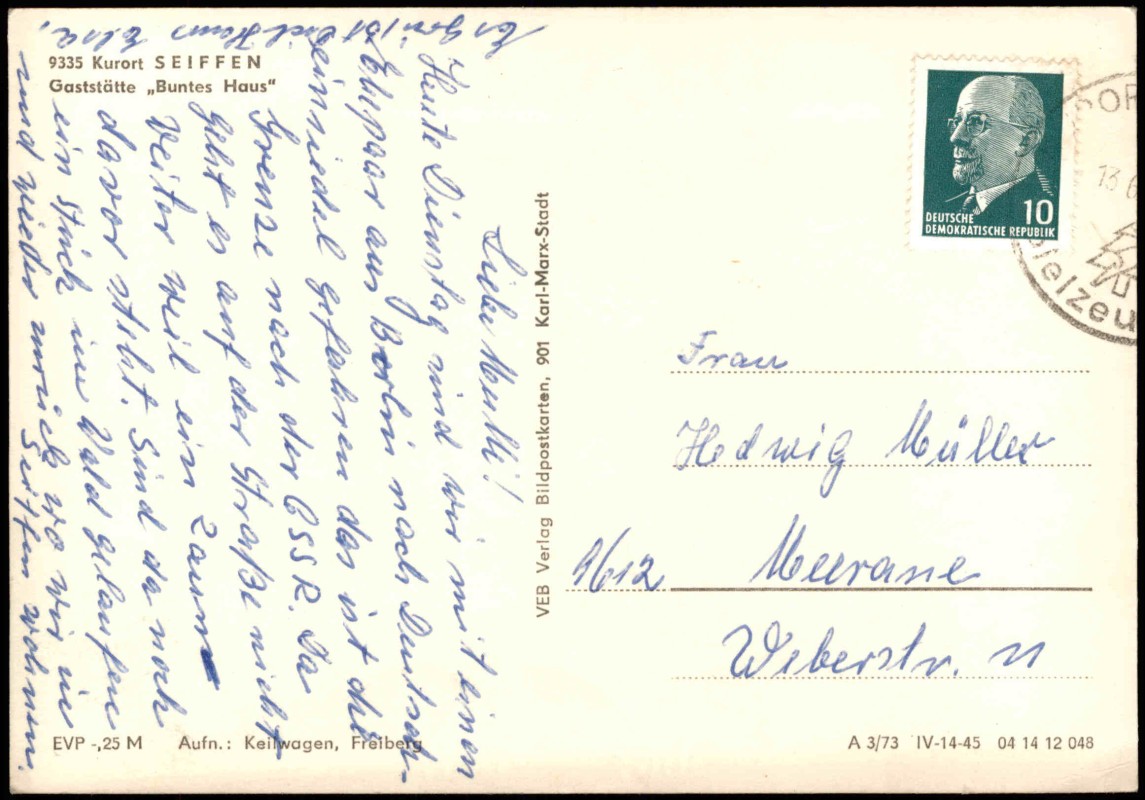 9335 Kurort SEIFFEN
Gaststätte „Buntes Haus"
Liebe Mutti!
Heute Dienstag sind wir mit einen
Ehepaar aus Berlin nach Deutsch-
einsiedel gefahren das ist die
Grenze nach der CSSR. Da
geht es auf der Straße nicht
weiter weil ein Zaun
davor steht. Sind da noch
ein stück im Wald gelaufen
und wieder zurück wo wir in
Seiffen wohnen.
Es grüßt Dich Hans Elsa,
VEB Verlag Bildpostkarten, 901 Karl-Marx-Stadt
DEUTSCHE
DEMOKRATISCHE REPUBLIK
10
13 6
Frau
Hedwig Müller
9612 Meerane
Weberstr. 11
EVP -,25 M Aufn.: Keilwagen, Freiberg
A 3/73 IV-14-45 04 14 12 048